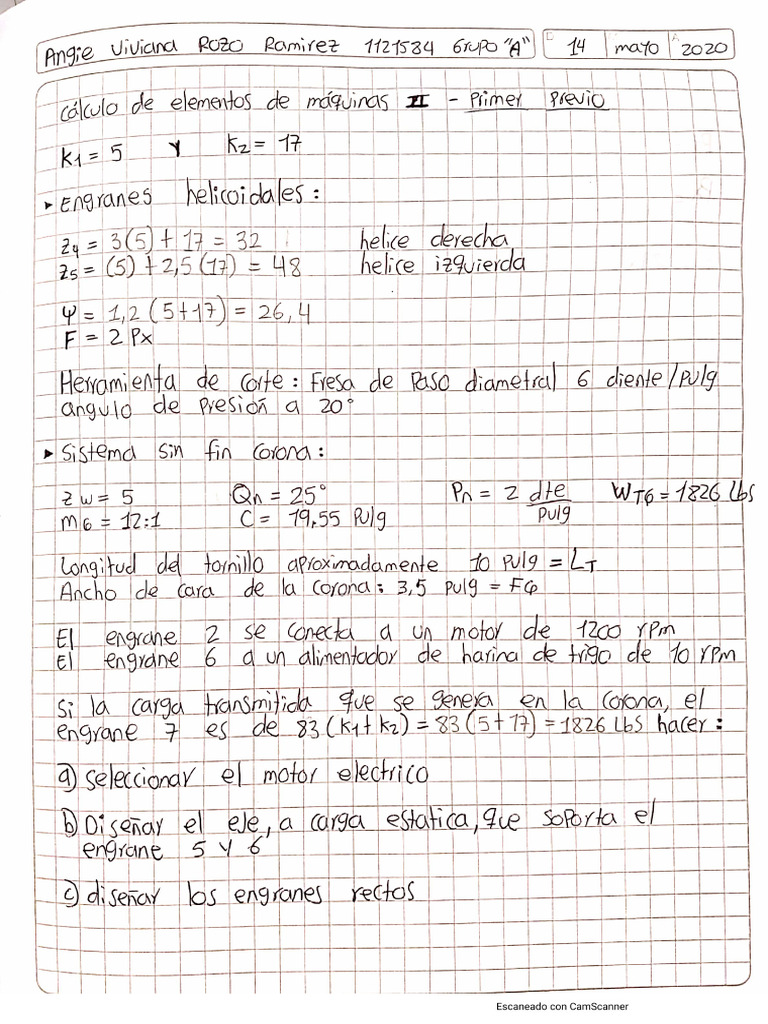 Angie Viviana Rozo Ramirez 1121584 Grupo "A" 14 mayo 2020
Cálculo de elementos de máquinas II - Primer Previo
K1 = 5 Y K2 = 17
▸ Engranes helicoidales:
Z4 = 3(5) + 17 = 32 helice derecha
Z5 = (5) + 2,5(17) = 48 helice izquierda
Ψ = 1,2 (5+17) = 26,4
F = 2 Px
Herramienta de corte: Fresa de Paso diametral 6 diente/Pulg
angulo de Presión a 20°
▸ Sistema sin fin Corona:
Zw = 5 Qn = 25° Pn = 2 dte/Pulg WT6 = 1826 lbs
m6 = 12:1 C = 19,55 Pulg
Longitud del tornillo aproximadamente 10 pulg = LT
Ancho de cara de la corona: 3,5 pulg = FG
El engrane 2 se conecta a un motor de 1200 rpm
El engrane 6 a un alimentador de harina de trigo de 10 rpm
Si la carga transmitida que se genera en la corona, el
engrane 7 es de 83(K1+K2) = 83(5+17) = 1826 Lbs hacer:
a) Seleccionar el motor electrico
b) Diseñar el eje, a carga estatica, que soporta el
engrane 5 y 6
c) diseñar los engranes rectos
Escaneado con CamScanner